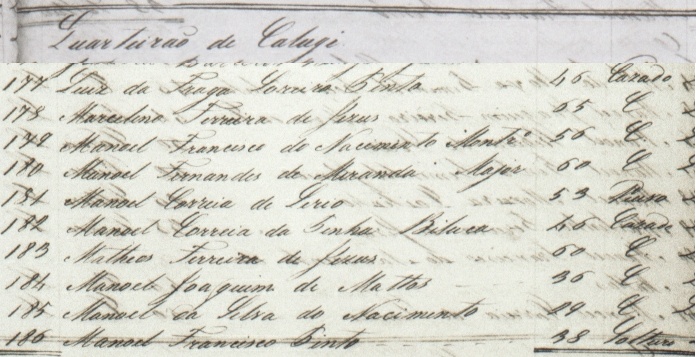 Quarteirão de Calugi
177 Luiz da Fraga Loreiro Pinto 46 Cazado
178 Marcelino Ferreira de Jezus 65 C.
179 Manoel Francisco do Nacimento Montrº 56 C.
180 Manoel Fernandes de Miranda Major 60 C.
181 Manoel Correia de 53
182 Manoel Correia da Penha Biluca 46 Cazado
183 Matheos Ferreira de Jezus 60 C.
184 Manoel Joaquim de Mattos 36 C.
185 Manoel da Silva do Nacimento 29 C.
186 Manoel Francisco Pinto 38 Solteiro